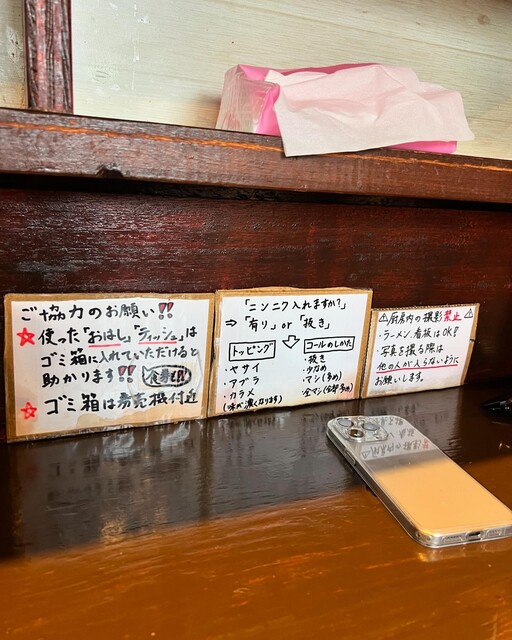 ご協力のお願い!!
☆使った「おはし」「ティッシュ」は
ゴミ箱に入れていただけると
助かります!!
☆ゴミ箱は券売機付近
「ニンニク入れますか?」
⇒「有り」or「抜き」
トッピング
・ヤサイ
・アブラ
・カラメ
(味が濃くなります)
コールのしかた
・抜き
・少なめ
・マシ(多め)
・全マシ(全部多め)
⚠厨房内の撮影禁止⚠
・ラーメン、看板はOK!!
・写真を撮る際は
他の人が入らないように
お願いします。